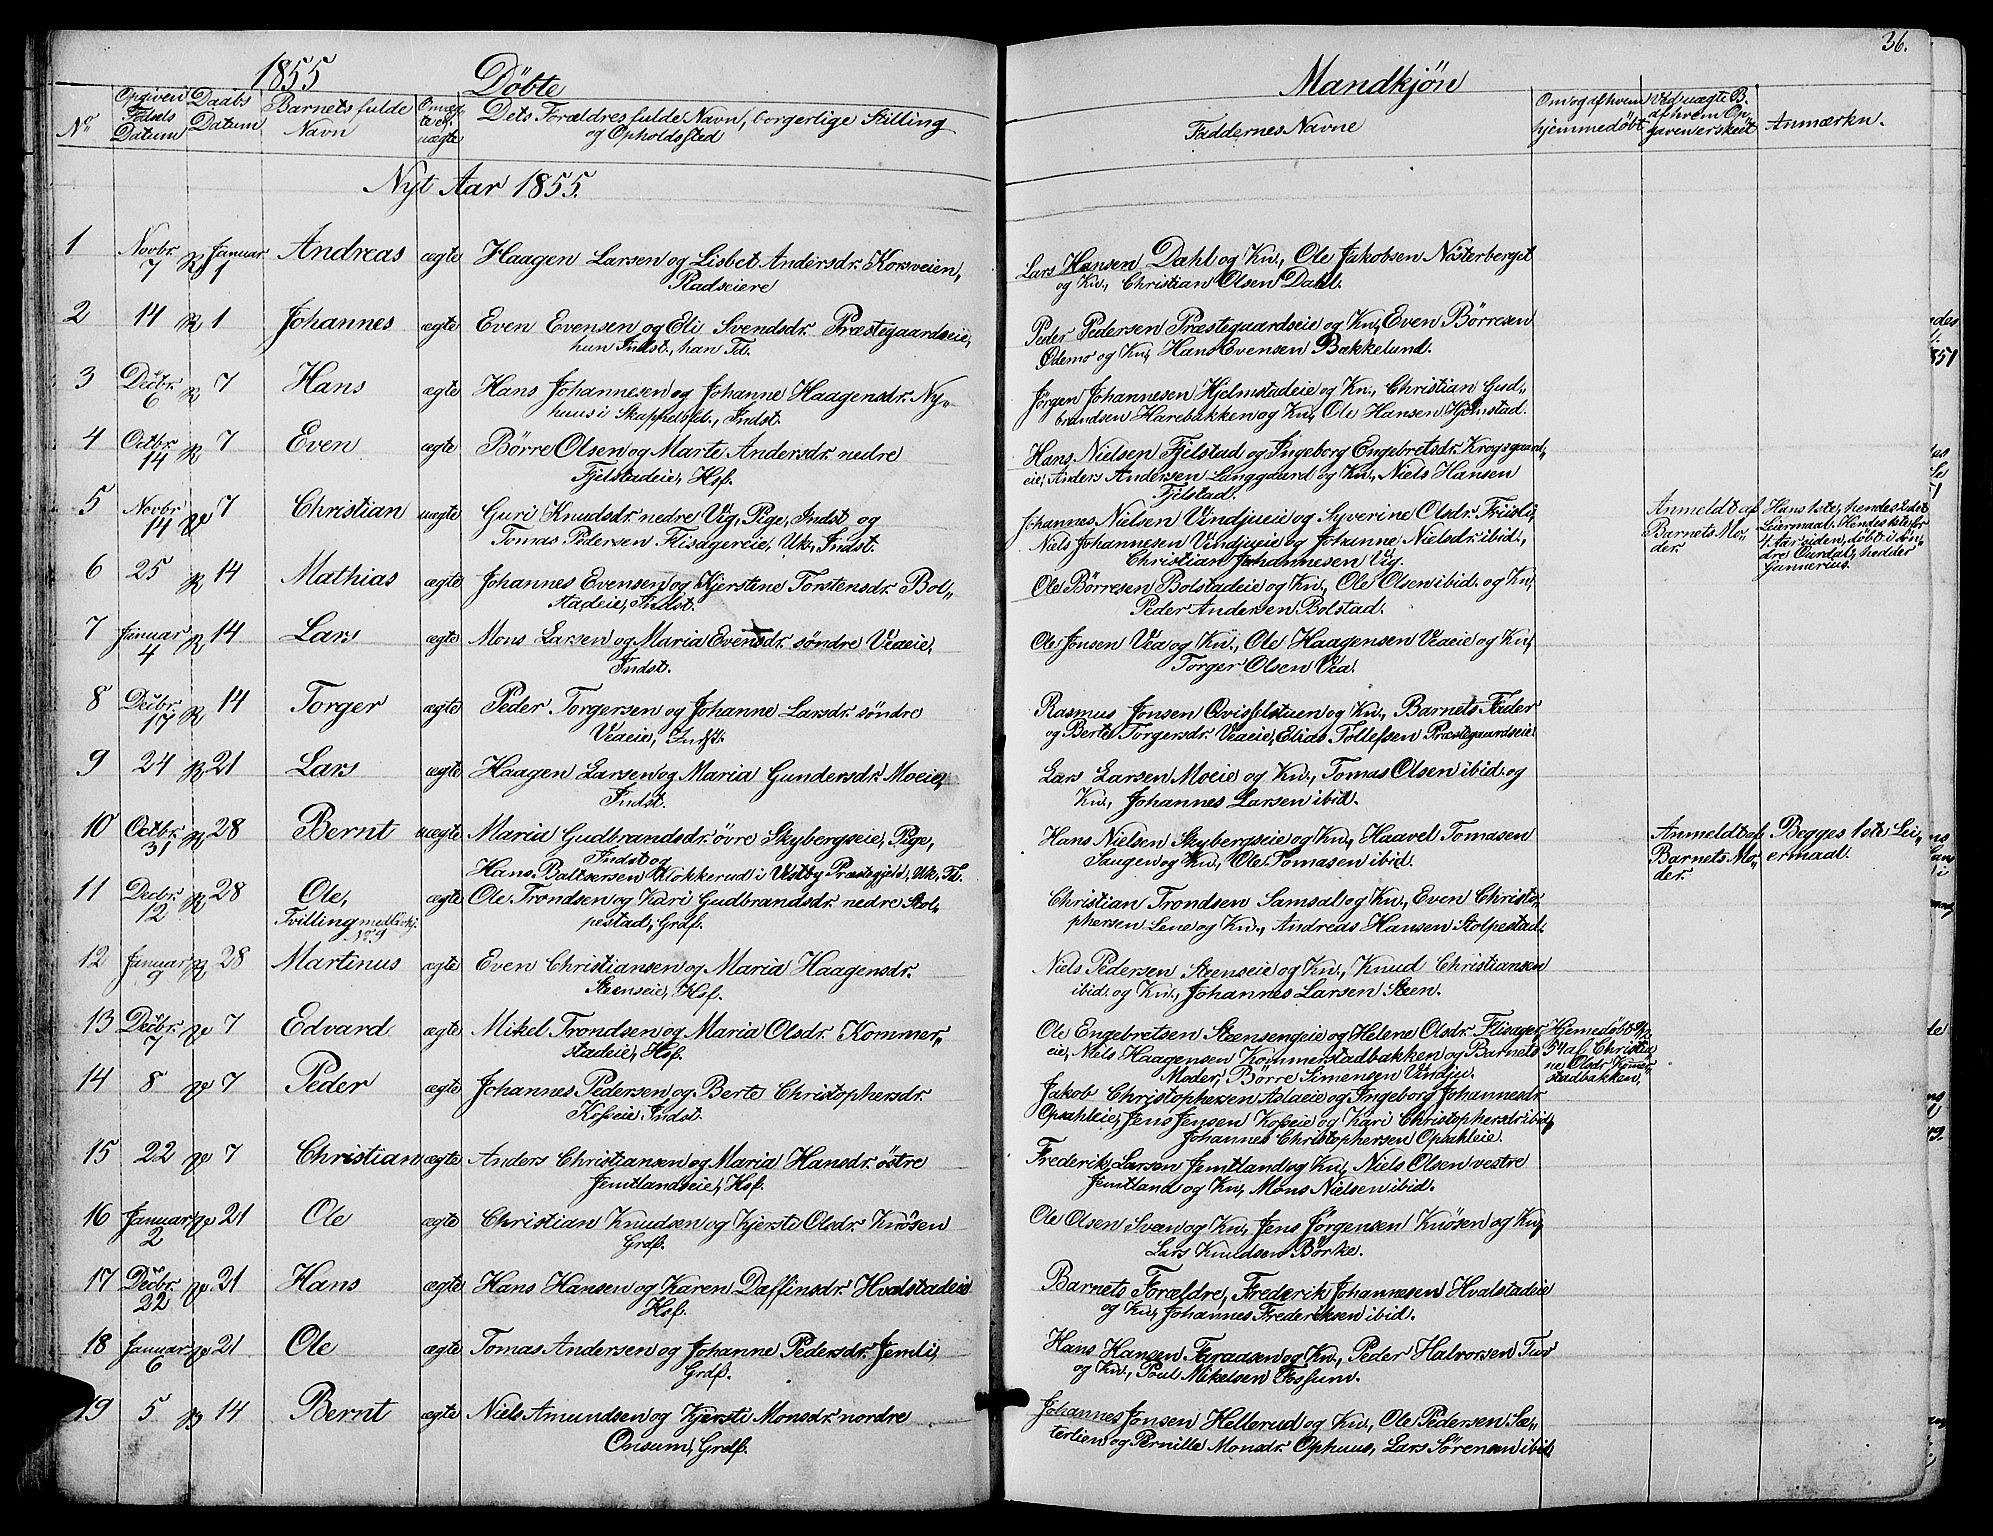 1855 Döbte
No
Opgiven Fødsels Datum
Daabs Datum
Barnets fulde Navn
Om ægte el. uægte
Dets Forældres fulde Navn, borgerlige Stilling og Opholdssted
Nyt Aar 1855.
1 Novbr. 7 R Januar 1 Andreas ægte Haagen Larsen og Lisbet Andersdr. Korsveien,
Pladseiere
2 14 R 1 Johannes ægte Even Evensen og Eli Svendsdr. Præstegaardseie,
hun Indst., han Td.
3 Decbr. 6 R 7 Hans ægte Hans Johannesen og Johanne Haagensdr. Ny-
huus i Skappelsfl., Indst.
4 Octbr. 14 R 7 Even ægte Börre Olsen og Marte Andersdr. nedre
Fjelstadeie, Hsf.
5 Novbr. 14 7 Christian uægte Guri Knudsdr. nedre Vig, Pige, Indst og
Tomas Pedersen Flisagereie, Uk., Indst.
6 25 R 14 Mathias ægte Johannes Evensen og Kjerstine Torstensdr. Bol-
stadeie, Indst.
7 Januar 4 R 14 Lars ægte Mons Larsen og Maria Evensdr. söndre Veaeie,
Indst.
8 Decbr. 17 R 14 Torger ægte Peder Torgersen og Johanne Larsdr. söndre
Veaeie, Indst.
9 24 R 21 Lars ægte Haagen Larsen og Maria Gundersdr. Moeie,
Indst.
10 Octbr. 31 R 28 Bernt uægte Maria Gudbrandsdr. övre Skybergseie, Pige,
Indst og
Hans Baltsersen Klokkerud i Vestby Præstegjeld, Uk, Td.
11 Decbr. 12 R 28 Ole, ægte Ole Trondsen og Kari Gudbrandsdr. nedre Stol-
Tvilling med
No 9 pestad, Grdb.
12 Januar 9 R 28 Martinus ægte Even Christiansen og Maria Haagensdr.
Steenseie, Hsf.
13 Decbr. 7 7 Edvard ægte Mikel Trondsen og Maria Olsdr. Kommer-
stadeie, Hsf.
14 8 7 Peder ægte Johannes Pedersen og Berte Christophersdr.
Kosseie, Indst.
15 22 7 Christian ægte Anders Christiansen og Maria Hansdr. östre
Jemtlandseie, Hsf.
16 Januar 2 21 Ole ægte Christian Knudsen og Kjersti Olsdr. Knösen
Grdb.
17 Decbr. 22 21 Hans ægte Hans Hansen og Karen Daffinsdr. Hvalstadeie
Hsf.
18 Januar 6 21 Ole ægte Tomas Andersen og Johanne Pedersdr. Jemli,
Grdb.
19 5 R 14 Bernt ægte Niels Amundsen og Kjersti Monsdr. nordre
Onsum, Grdb.
36.
Mandkjön
Faddernes Navne
Om og af hvem hjemmedöbt
Ved uægte B. af hvem Opgaven er skeet
Anmærkn.
Lars Hansen Dahl og Kn., Ole Jakobsen Nösterberget
og Kn., Christian Olsen Dahl.
Peder Pedersen Præstegaardseie og Kn, Even Börresen
Ödemo og Kn, Hans Evensen Bakkelund.
Jörgen Johannesen Hjelmstadeie og Kn., Christian Gud-
brandsen Harebakken og Kn, Ole Hansen Hjelmstad.
Hans Nielsen Fjelstad og Ingeborg Engebretsdr. Krogsgaard-
eie, Anders Andersen Langgaard og Kn., Niels Hansen
Fjelstad.
Johannes Nielsen Vindjueie og Syverine Olsdr. Friisli,
Niels Johannesen Vindjueie og Johanne Nielsdr. ibid.,
Christian Johannesen Vig.
Anmeldt af
Barnets Mo-
der.
Hans 1ste, hendes 2det
Leiermaal. Hendes 1ste for
4 Aar siden, döbt i Søn-
dre Ourdal, hedder
Gunnerius.
Ole Börresen Bolstadeie og Kn, Ole Olsen ibid. og Kn,
Peder Andersen Bolstad.
Ole Jonsen Vea og Kn., Ole Haagensen Veaeie og Kn,
Torger Olsen Vea.
Rasmus Jonsen Qvisselstuen og Kn., Barnets Fader
og Berte Torgersdr. Veaeie, Elias Tollefsen Præstegaardseie
Lars Larsen Moeie og Kn., Tomas Olsen ibid. og
Kn., Johannes Larsen ibid.
Hans Nielsen Skybergseie og Kn, Haavel Tomasen
Saugen og Kn, Ole Tomasen ibid.
Anmeldt af
Barnets Mo-
der.
Begges 1ste Lei-
ermaal.
Christian Trondsen Samsal og Kn., Even Christo-
phersen Lene og Kn., Andreas Hansen Stolpestad.
Niels Pedersen Steenseie og Kn., Knud Christiansen
ibid. og Kn., Johannes Larsen Steen.
Ole Engebretsen Steensengeie og Helene Olsdr. Flisager-
eie, Niels Haagensen Kommerstadbakken og Barnets
Moder, Börre Simensen Vindju.
Hjemedöbt
54 af Christia
ne Olsdr Komer-
stadbakken,
Jakob Christophersen Aslaeie og Ingeborg Johannesdr.
Opsahleie, Jens Jensen Kosseie og Kari Christophersdr. ibid,
Johannes Christophersen Opsahleie.
Frederik Larsen Jemtland og Kn, Niels Olsen vestre
Jemtland og Kn, Mons Nielsen ibid.
Ole Olsen Svæn og Kn., Jens Jörgensen Knösen og Kn,
Lars Knudsen Börke.
Barnets Forældre, Frederik Johannesen Hvalstadeie
og Kn, Johannes Frederiksen ibid.
Hans Hansen Faraasen og Kn., Peder Halvorsen Tuv
og Kn., Poul Mikelsen Fossum.
Johannes Jonsen Hellerud og Kn., Ole Pedersen Sæ-
terlien og Pernille Monsdr. Ophuus, Lars Sörensen ibid